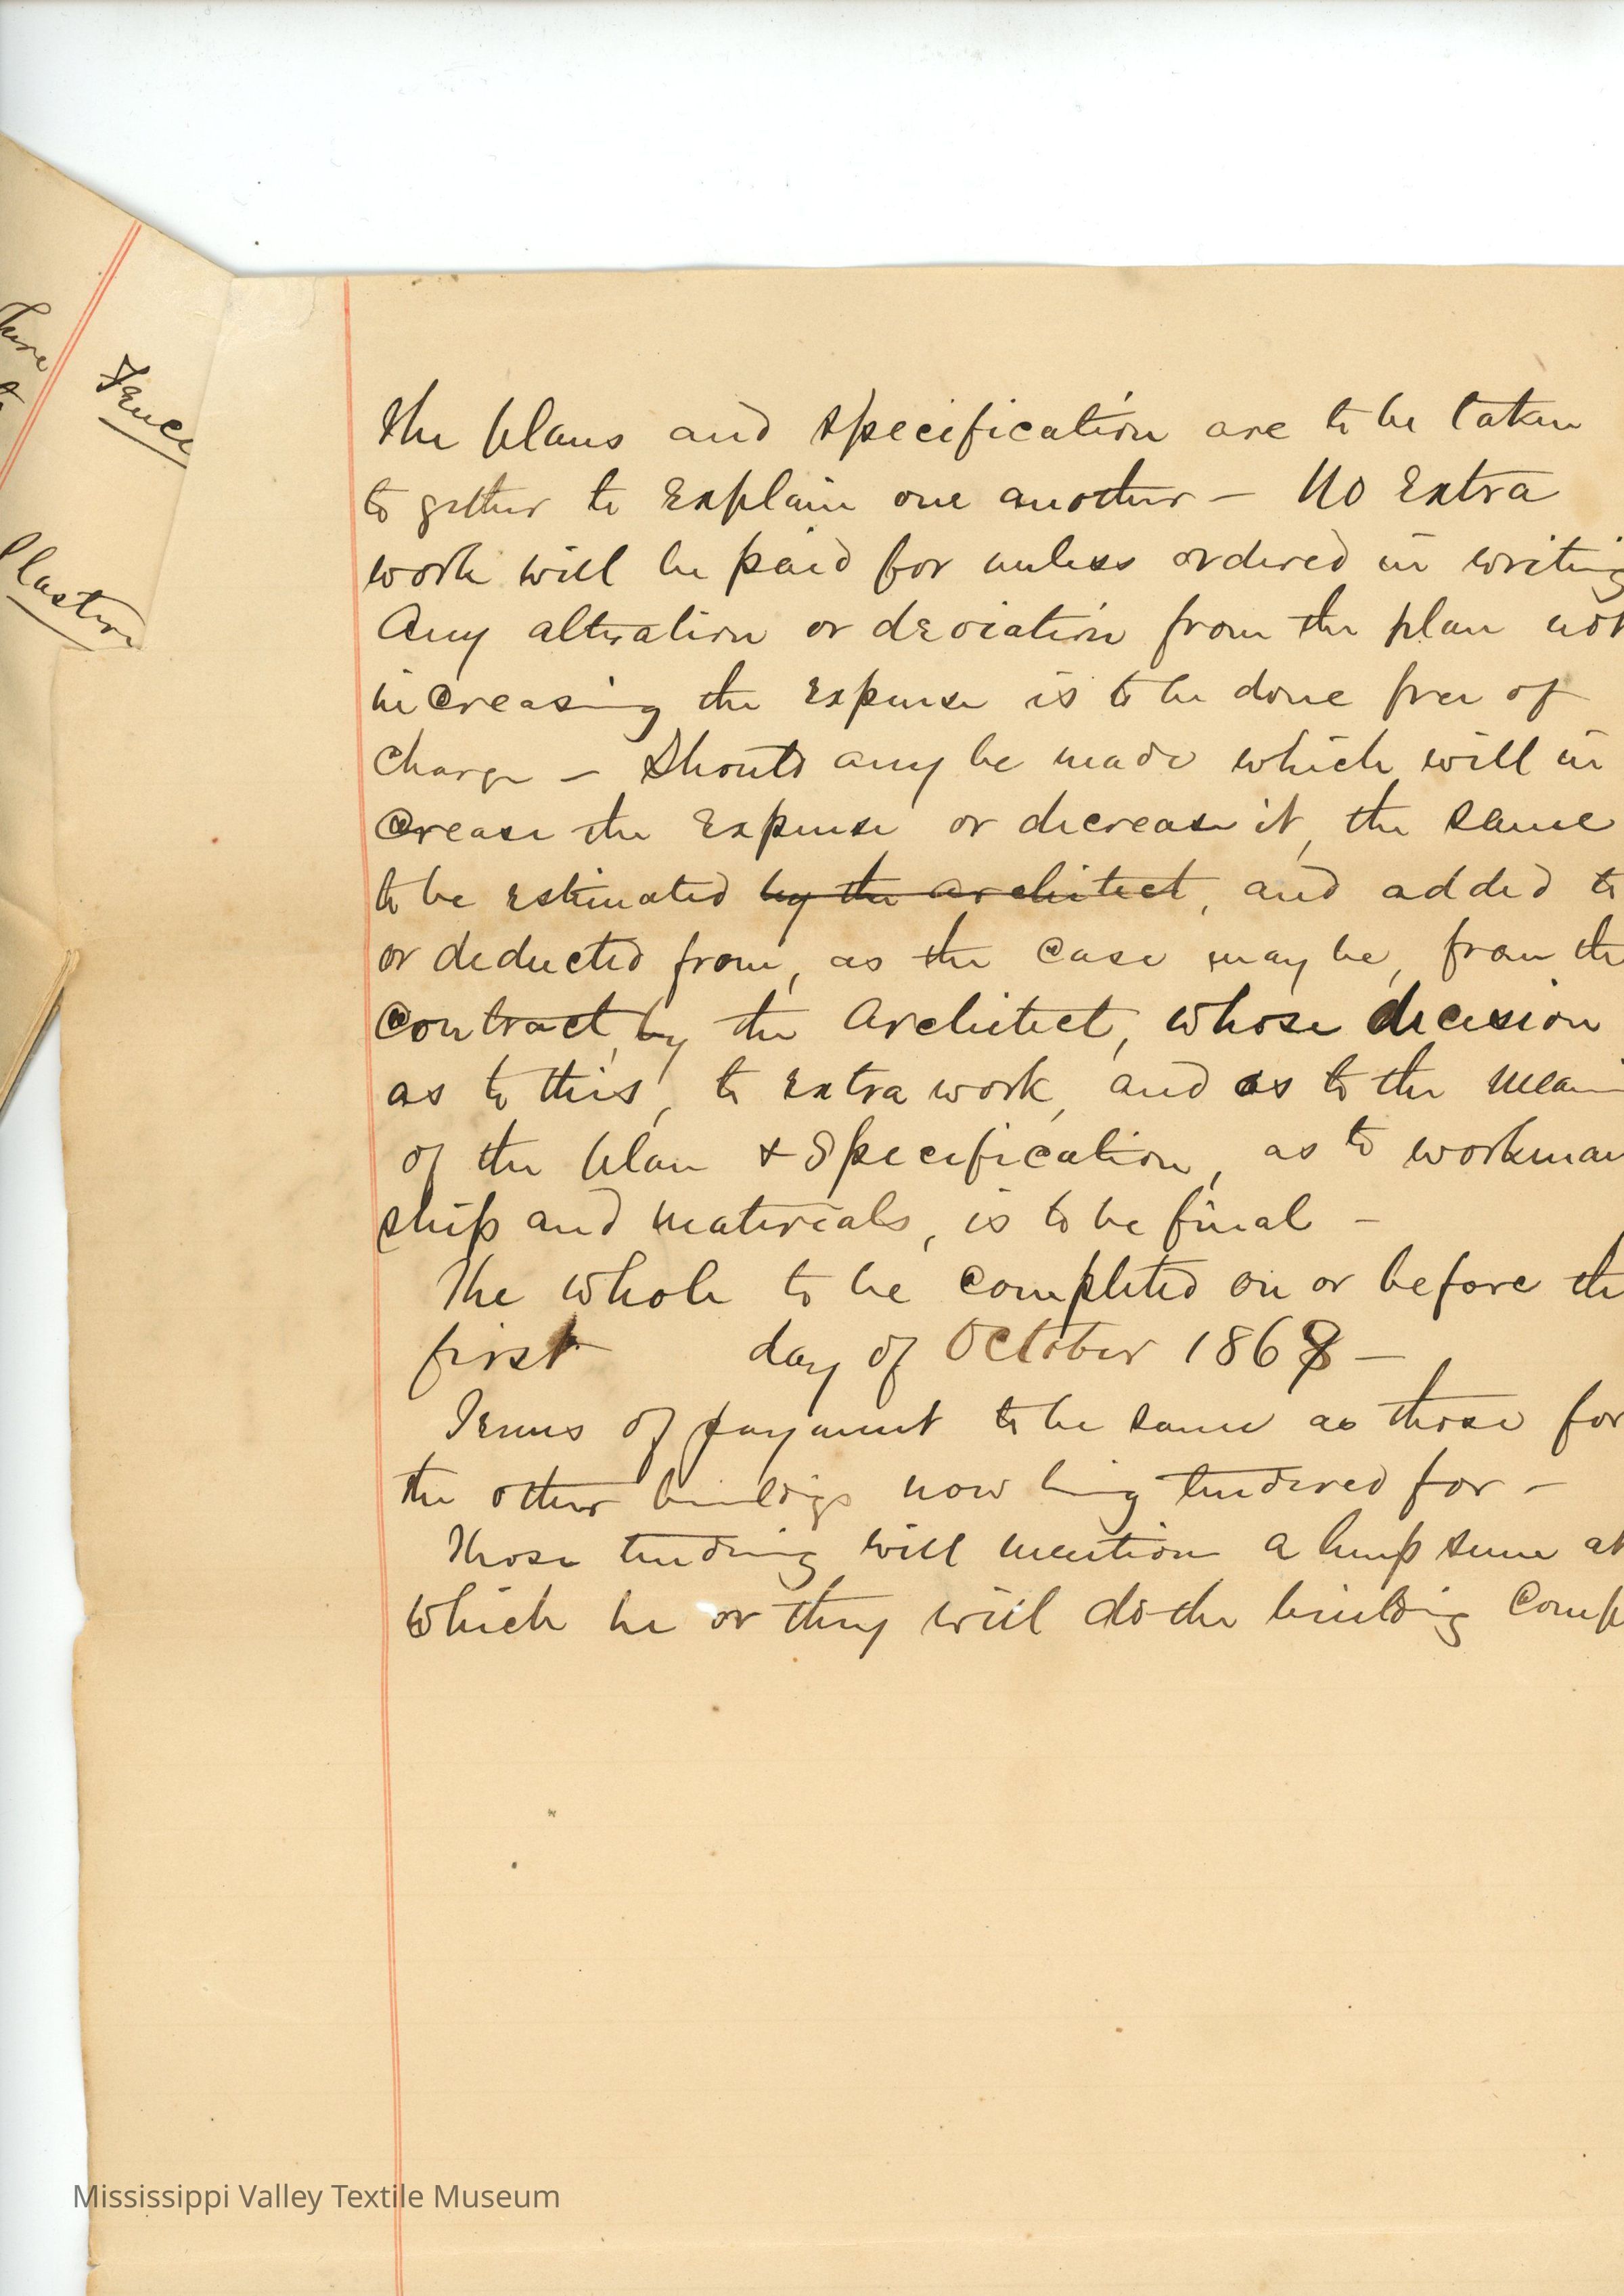 Fence
Plaster
The plans and specification are to be taken
to gether to explain one another – No extra
work will be paid for unless ordered in writing
Any alteration or deviation from the plan not
increasing the expense is to be done free of
charge – Should any be made which will in
crease the expense or decrease it, the same
to be estimated by the architect, and added to
or deducted from, as the case may be, from the
contract, by the Architect, whose decision
as to this, to extra work, and as to the mean
of the plan & Specification, as to workman
ship and materials, is to be final –
The whole to be completed on or before the
first day of October 1868 –
Terms of payment to be same as those for
the other buildings now being tendered for –
Those tendring will mention a lump sum at
which he or they will do the building comp
Mississippi Valley Textile Museum